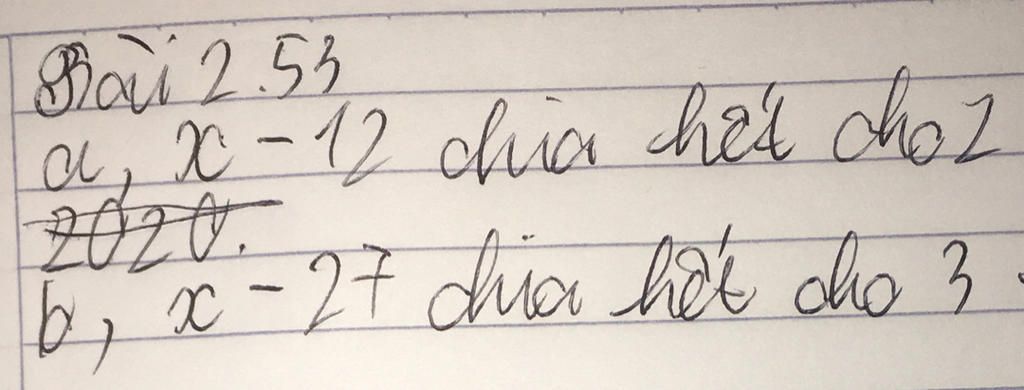 Bài 2.53
a, x - 12 chia hết cho 2
2020.
b, x - 27 chia hết cho 3.